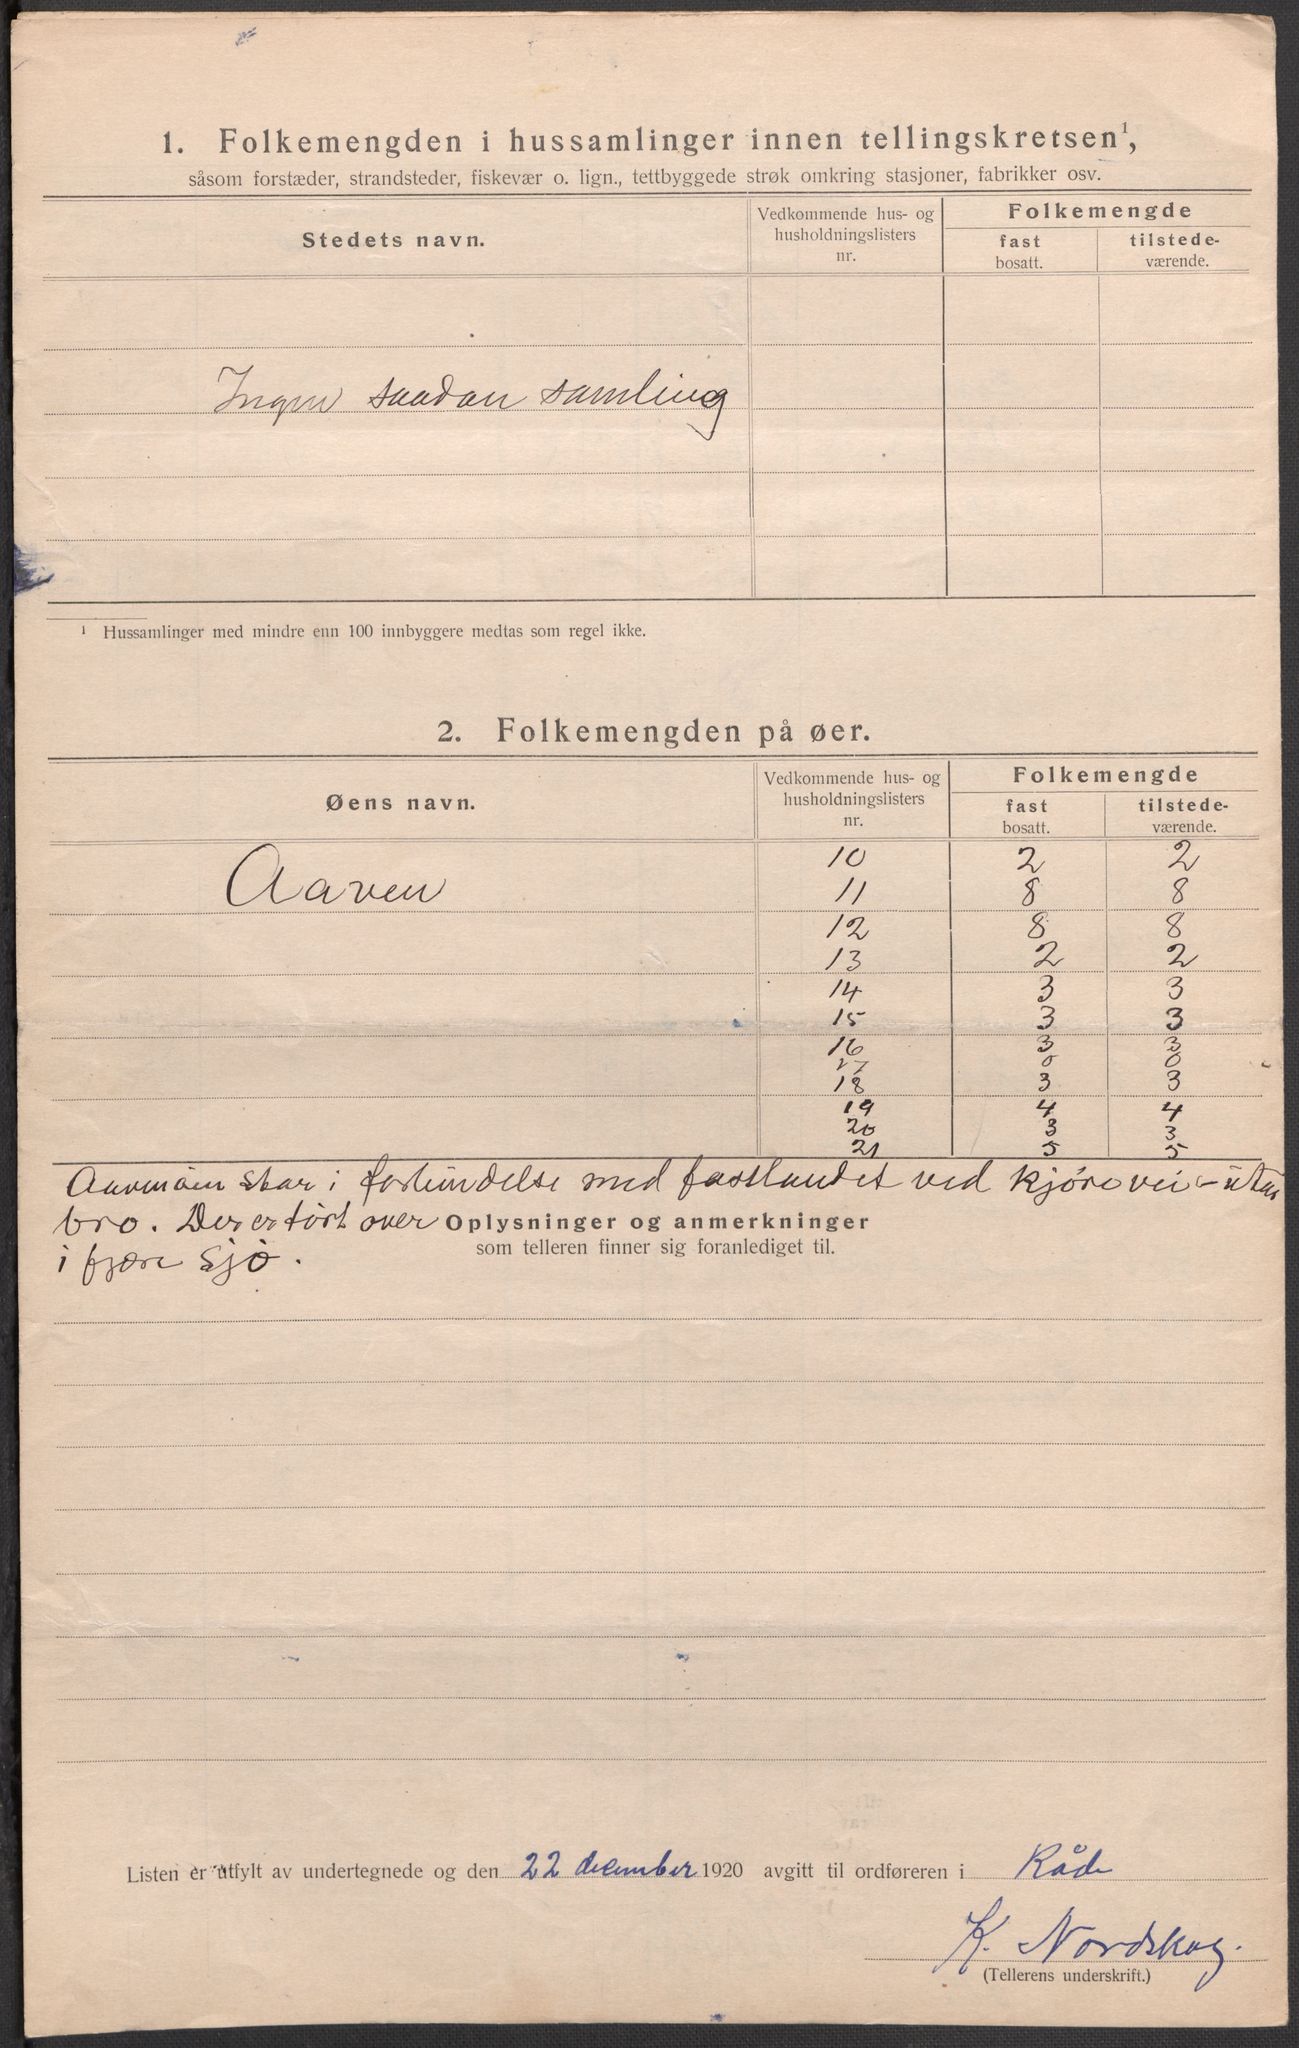 1. Folkemengden i hussamlinger innen tellingskretsen¹,
såsom forstæder, strandsteder, fiskevær o. lign., tettbyggede strøk omkring stasjoner, fabrikker osv.
Stedets navn.
Vedkommende hus- og husholdningslisters nr.
Folkemengde
fast bosatt.
tilstede-værende.
Ingen saadan samling
¹ Hussamlinger med mindre enn 100 innbyggere medtas som regel ikke.
2. Folkemengden på øer.
Øens navn.
Vedkommende hus- og husholdningslisters nr.
Folkemengde
fast bosatt.
tilstede-værende.
10 2 2
Aaven 11 8 8
12 8 8
13 2 2
14 3 3
15 3 3
16 3 3
17 0 0
18 3 3
19 4 4
20 3 3
21 5 5
staar i forbindelse med fastlandet ved kjørevei - utan
bro. Der er tørt over
i fjære sjø.
Oplysninger og anmerkninger
som telleren finner sig foranlediget til.
Listen er utfylt av undertegnede og den 22 december 1920 avgitt til ordføreren i Råde
K. Nordskog.
(Tellerens underskrift.)